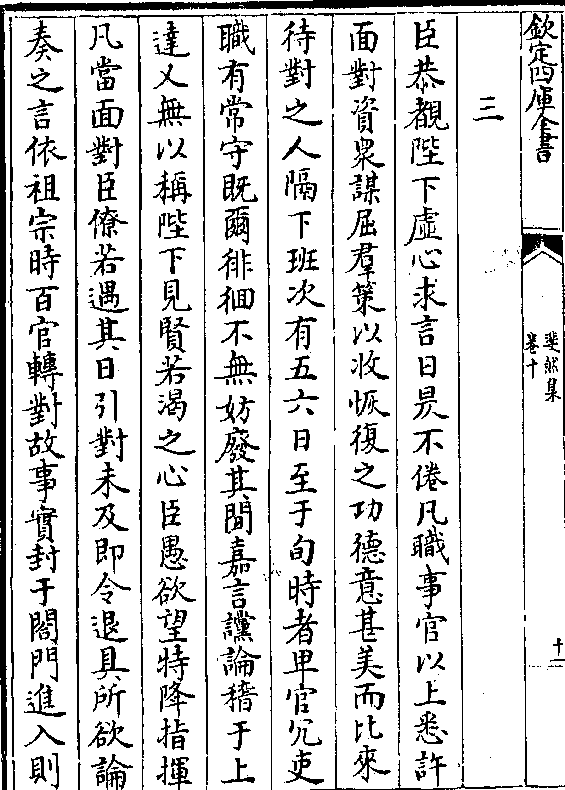 欽定四庫全書
斐然集
卷十
十一
三
臣恭覩陛下虛心求言日昃不倦凡職事官以上悉許
面對資衆謀屈羣策以收恢復之功德意甚美而比來
待對之人隔下班次有五六日至于旬時者卑官冗吏
職有常守既爾徘徊不無妨廢其間嘉言讜論稽于上
達又無以稱陛下見賢若渴之心臣愚欲望特降指揮
凡當面對臣僚若遇其日引對未及即令退具所欲論
奏之言依祖宗時百官轉對故事實封于閤門進入則